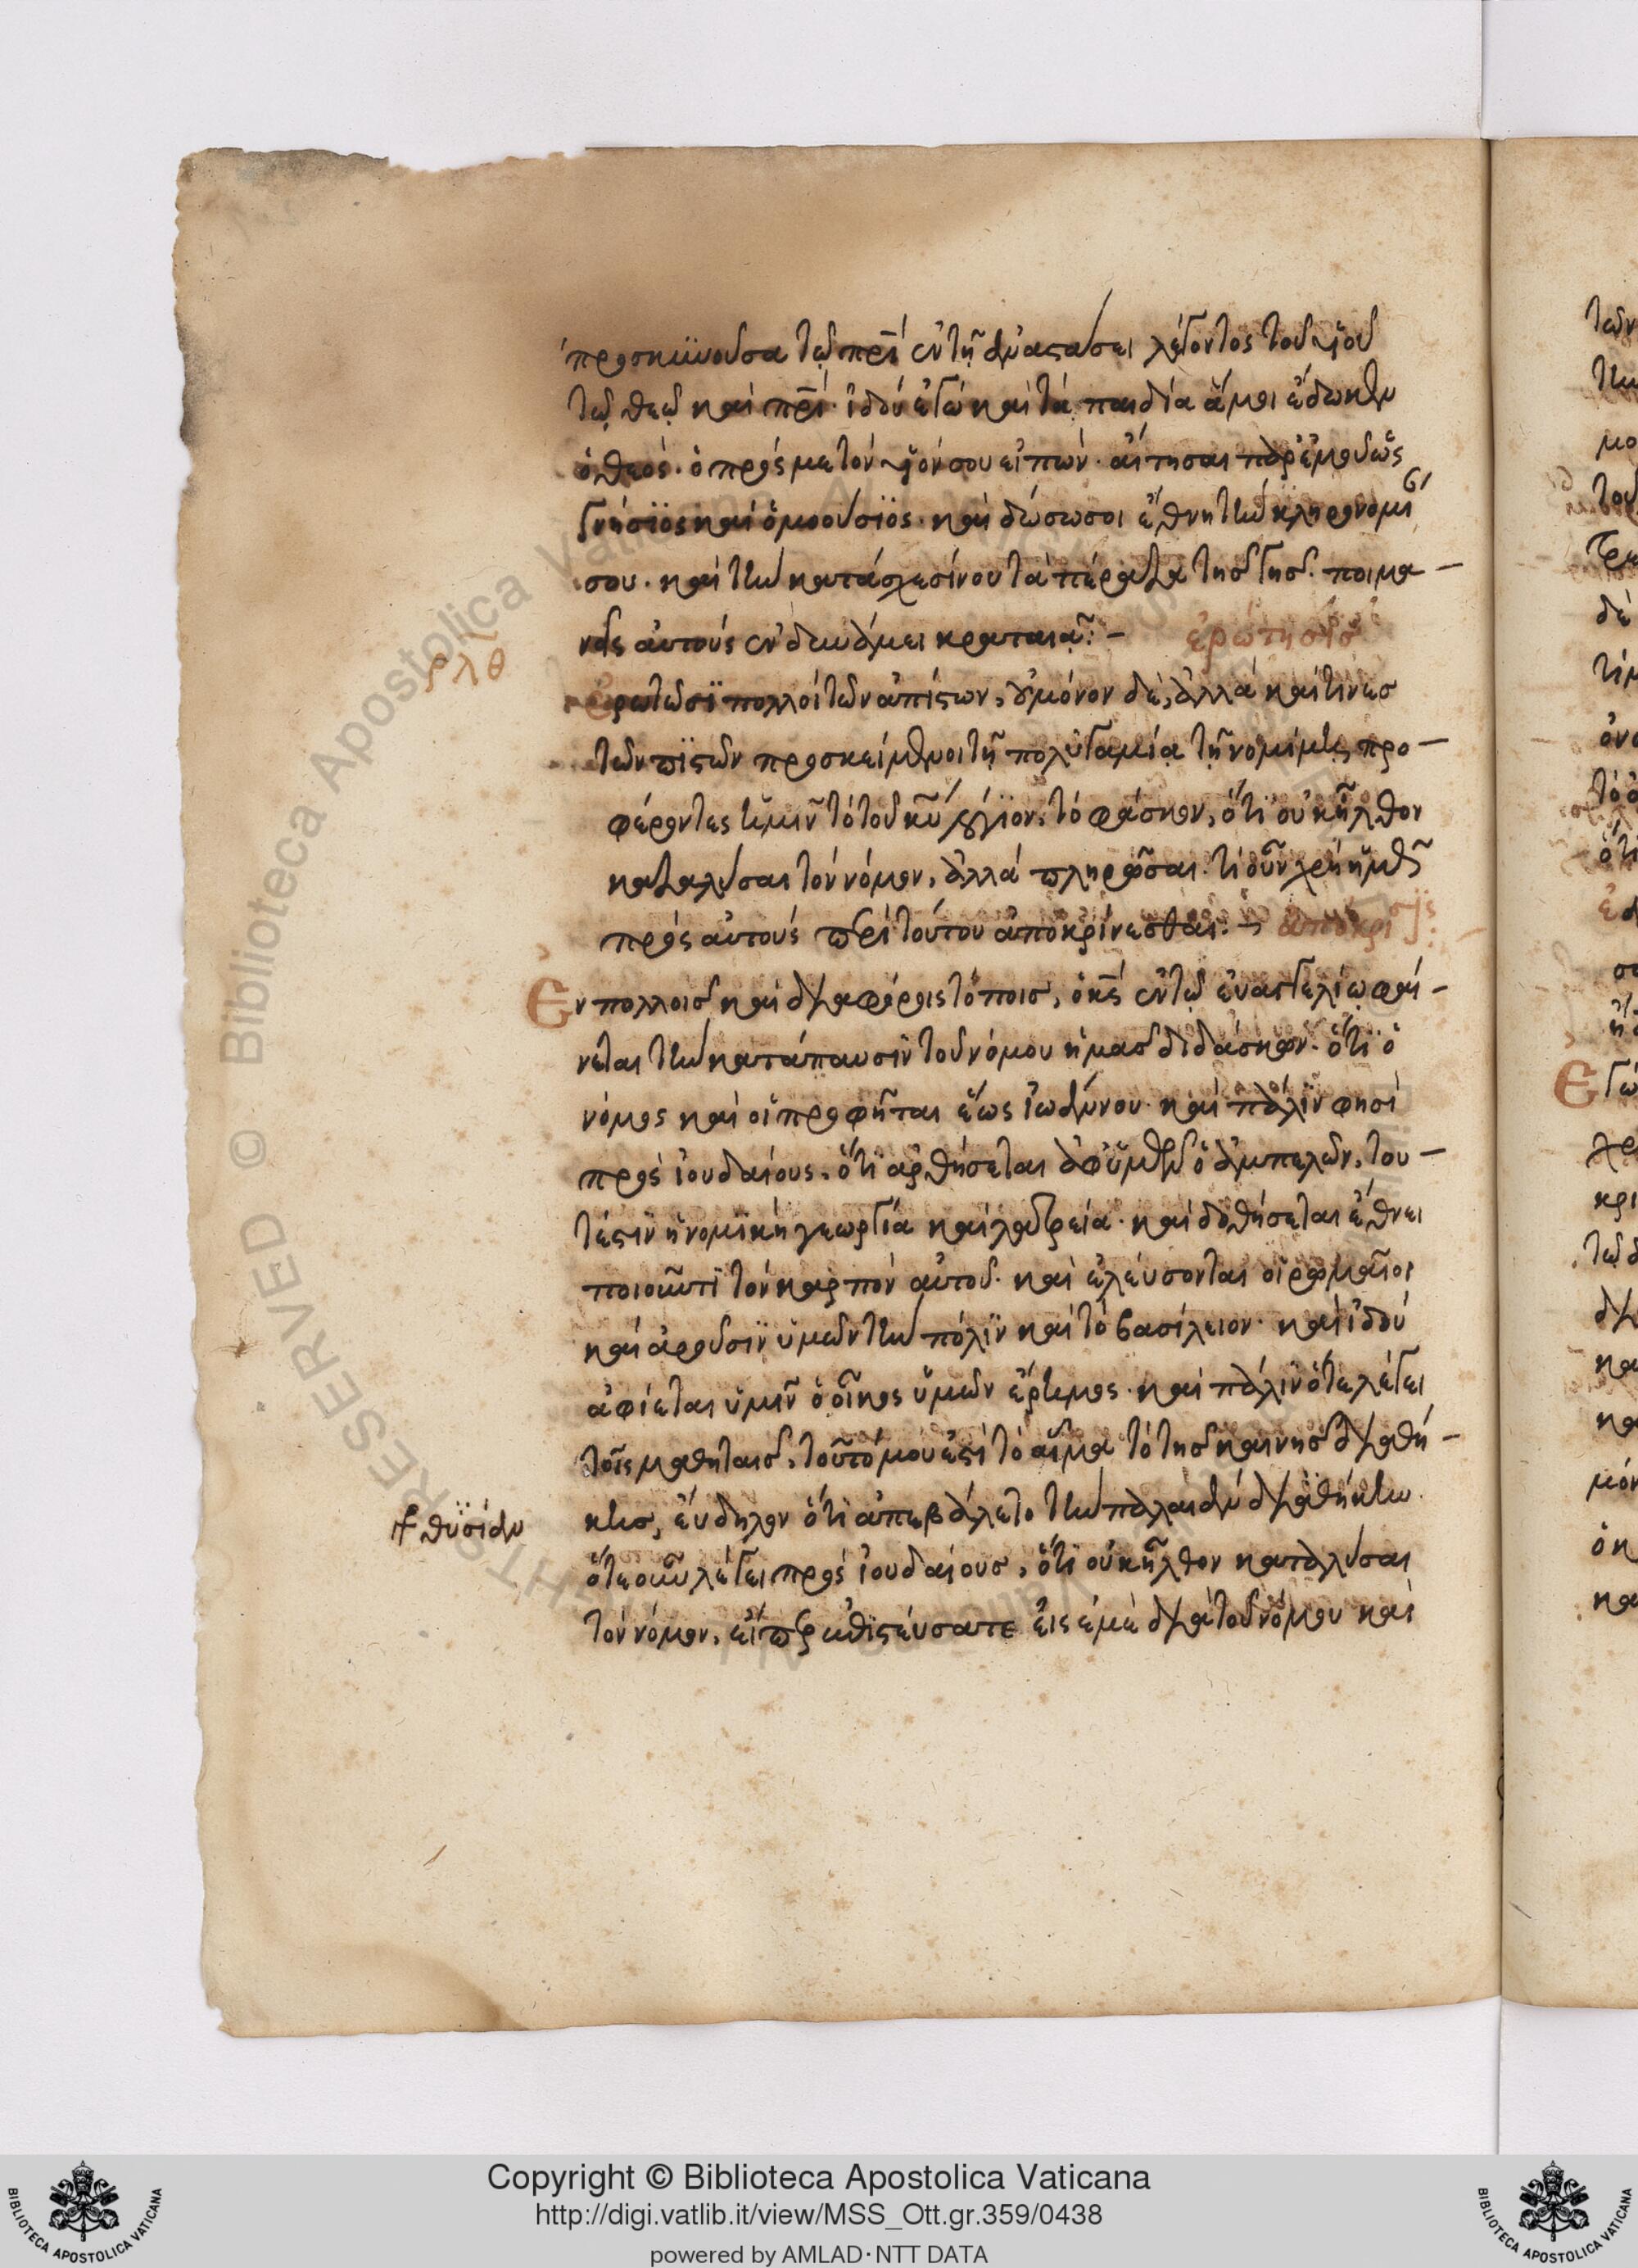 προσκυνοῦσα τῷ πρὶ ἐν τῇ ἀναστάσει λέγοντος τοῦ υἱοῦ
τῷ θεῷ καὶ πρὶ· ἰδοὺ ἐγὼ καὶ τὰ παιδία ἅ μοι ἔδωκεν
ὁ θεός· ὁ πρός με τὸν υἱόν σου εἰπών· αἴτησαι παρ' ἐμοῦ ὡς
γνήσϊος καὶ ὁμοούσϊος· καὶ δώσω σοι ἔθνη τὴν κληρονομί
σου· καὶ τὴν κατάσχεσίν σου τὰ πέρατα τῆς γῆς· ποιμα-
νεῖς αὐτοὺς ἐν δυνάμει κραταιᾷ:- ἐρώτησϊς
ρλθ
Ἐρωτῶσϊ πολλοὶ τῶν ἀπίστων, οὐ μόνον δὲ, ἀλλὰ καὶ τινὲς
τῶν πϊστῶν προσκείμενοι τῇ πολυγαμίᾳ τῇ νομίμῳ, προ-
φέροντες ἡμῖν τὸ τοῦ κυ λόγϊον, τὸ φάσκον, ὅτϊ οὐκ ἦλθον
καταλῦσαι τὸν νόμον, ἀλλὰ πληρῶσαι· τί οὖν χρὴ ἡμᾶς
πρὸς αὐτοὺς περὶ τούτου ἀποκρίνεσθαι:- ἀπόκρισις
Ἐν πολλοῖς καὶ διαφόροις τόποις, ὁ κς ἐν τῷ εὐαγγελίῳ φαί-
νεται τὴν κατάπαυσϊν τοῦ νόμου ἡμᾶς διδάσκων· ὅτϊ ὁ
νόμος καὶ οἱ προφῆται ἕως ἰωάννου· καὶ πάλϊν φησὶ
πρὸς ἰουδαίους, ὅτϊ ἀρθήσεται ἀφ' ὑμῶν ὁ ἀμπελὼν, του-
τέστϊν ἡ νομϊκὴ γεωργία καὶ λατρεία· καὶ δοθήσεται ἔθνει
ποιοῦντϊ τὸν καρπὸν αὐτοῦ· καὶ ἐλεύσονται οἱ ρωμαῖοι
καὶ ἀροῦσϊν ὑμῶν τὴν πόλϊν καὶ τὸ βασίλειον· καὶ ἰδοὺ
ἀφίεται ὑμῖν ὁ οἶκος ὑμῶν ἔρημος· καὶ πάλϊν ὅτε λέγει
τοῖς μαθηταῖς, τοῦτό μου ἐστὶ τὸ αἷμα τὸ τῆς καινῆς διαθή-
κης, εὔδηλον ὅτϊ ἀπεβάλετο τὴν παλαιὰν διαθήκην
θϋσίαν
ὅτε οὖν λέγει πρὸς ἰουδαίους, ὅτϊ οὐκ ἦλθον καταλῦσαι
τὸν νόμον, εἴπερ ἐπϊστεύσατε εἰς ἐμὲ διὰ τοῦ νόμου καὶ
Copyright © Biblioteca Apostolica Vaticana
http://digi.vatlib.it/view/MSS_Ott.gr.359/0438
powered by AMLAD·NTT DATA